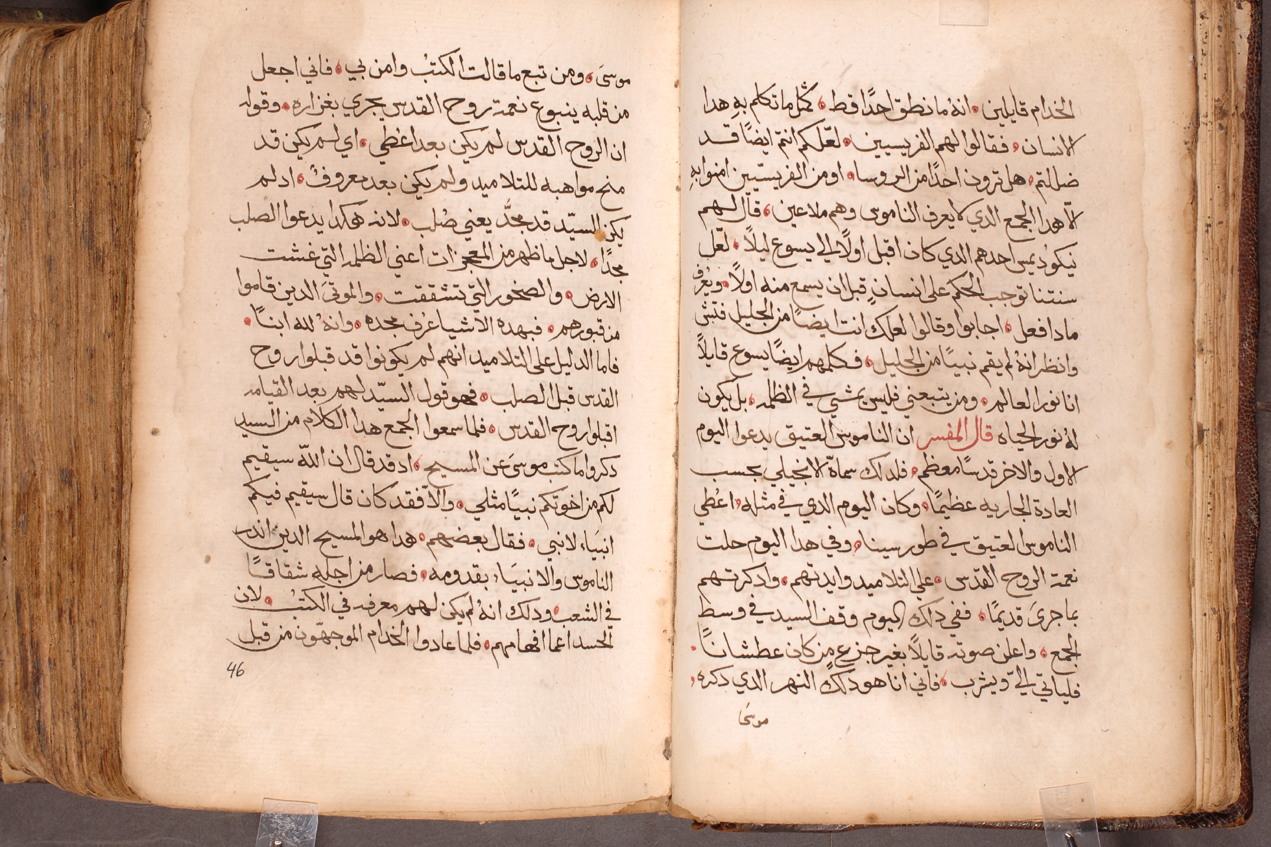 الخدام قايلين ٭ انه ما نطق احدًا قط ٭ كمثل ما تكلم به هدا
الانسان ٭ فقالوا لهم الفريسيين ٭ لعلكم انتم ايضًا قد
ضللتم ٭ هل ترون احدًا من الروسا ٭ او من الفريسيين امنوا به
الا هدا الجمع الدي لا يعرف الناموس وهم ملاعين ٭ قال لهم
نيكوديمس احدهم الدي كان اقبل اولًا الي يسوع ليلًا ٭ لعل
سنتنا توجب الحكم على انسانٍ قبل ان يسمع منه اولًا ٭ ويعرف
مادا فعل ٭ اجابوا وقالوا لعلك انت ايضًا من الجليل فتش
وانظر انهُ لم يقم نبيًا من الجليل ٭ فكلمهم ايضًا يسوع قايلًا
انا نور العالم ٭ ومن يتبعني فليس يمشي في الظلمه ٭ بل يكون
له نور الحياه قال المفسر ان الناموس العتيق يدعوا اليوم
الاول والاخر قدسًا معظم ٭ فلدلك سماه الانجيلي بحسب
العادة الجاريه عظيمًا ٭ وكان اليوم الدي في مثله ٭ اعُطي
الناموس العتيق في طور سينا ٭ وفي هدا اليوم حلت
نعمة الروح القدس ٭ على التلاميد وايدتهم ٭ وادكرتهم
بما جرىَ قديمًا ٭ ففي دلك اليوم وقف السيد في وسط
الجمع ٭ واعلن صوته قايلًا بغير جزع من كان عطشانًا ٭
فلياتي الي ويشرب ٭ فاني انا هو دلك النهر الدي دكره ٭
موسىَ
موسىَ ٭ ومن تبع ما قالت الكتبُ وامن بي ٭ فاني اجعل
من قلبه ينبوع نعمة روح القدس يجري بغزاره ٭ وقوله
ان الروح القدس لم يكن بعد اعُطي ٭ اي لم يكن قد
منح مواهبه للتلاميد ولم يكن بعد معروفُ ٭ اد لم
يكن السيد قد مجدُّ يعني صُلب ٭ لانه هكدا يدعوا الصلب
مجدًا ٭ لاجل ما ظهر من المعجزات اعني الظلمه التي غشت
الارض ٭ والصخور التي تشققت ٭ والموتى الدين قاموا
من قبورهم ٭ فبهده الاشيا عُرف مجده ٭ وانهُ لله ابنًا ٭
فاما الدليل على التلاميد انهم لم يكونوا قد قبلوا روح
القدس قبل الصلب ٭ فهو قول السيد لهم بعد القيامه
اقبلوا روح القدس ٭ فلما سمعوا الجمع هدا الكلام من السيد
دكروا ما كتب موسىَ عن المسيح ٭ اد قد قال ان اللّه سيقيم
لكم من اخوتكم نبيًا مثلي ٭ والا فقد كان قال سيقيم فيكم
انبياء لا نبى ٭ فقال بعضهم ٭ هدا هو المسيح الدين اندر
الناموس والانبياء بقدومه ٭ فصار من اجله شقاقًا
في الشعب ٭ ودلك انهُ لم يكن لهم معرفه في الكتب ٭ لان
الحسد اعما افهامهم ٭ فلما عادوا الخدام الموجهون من قبل
46